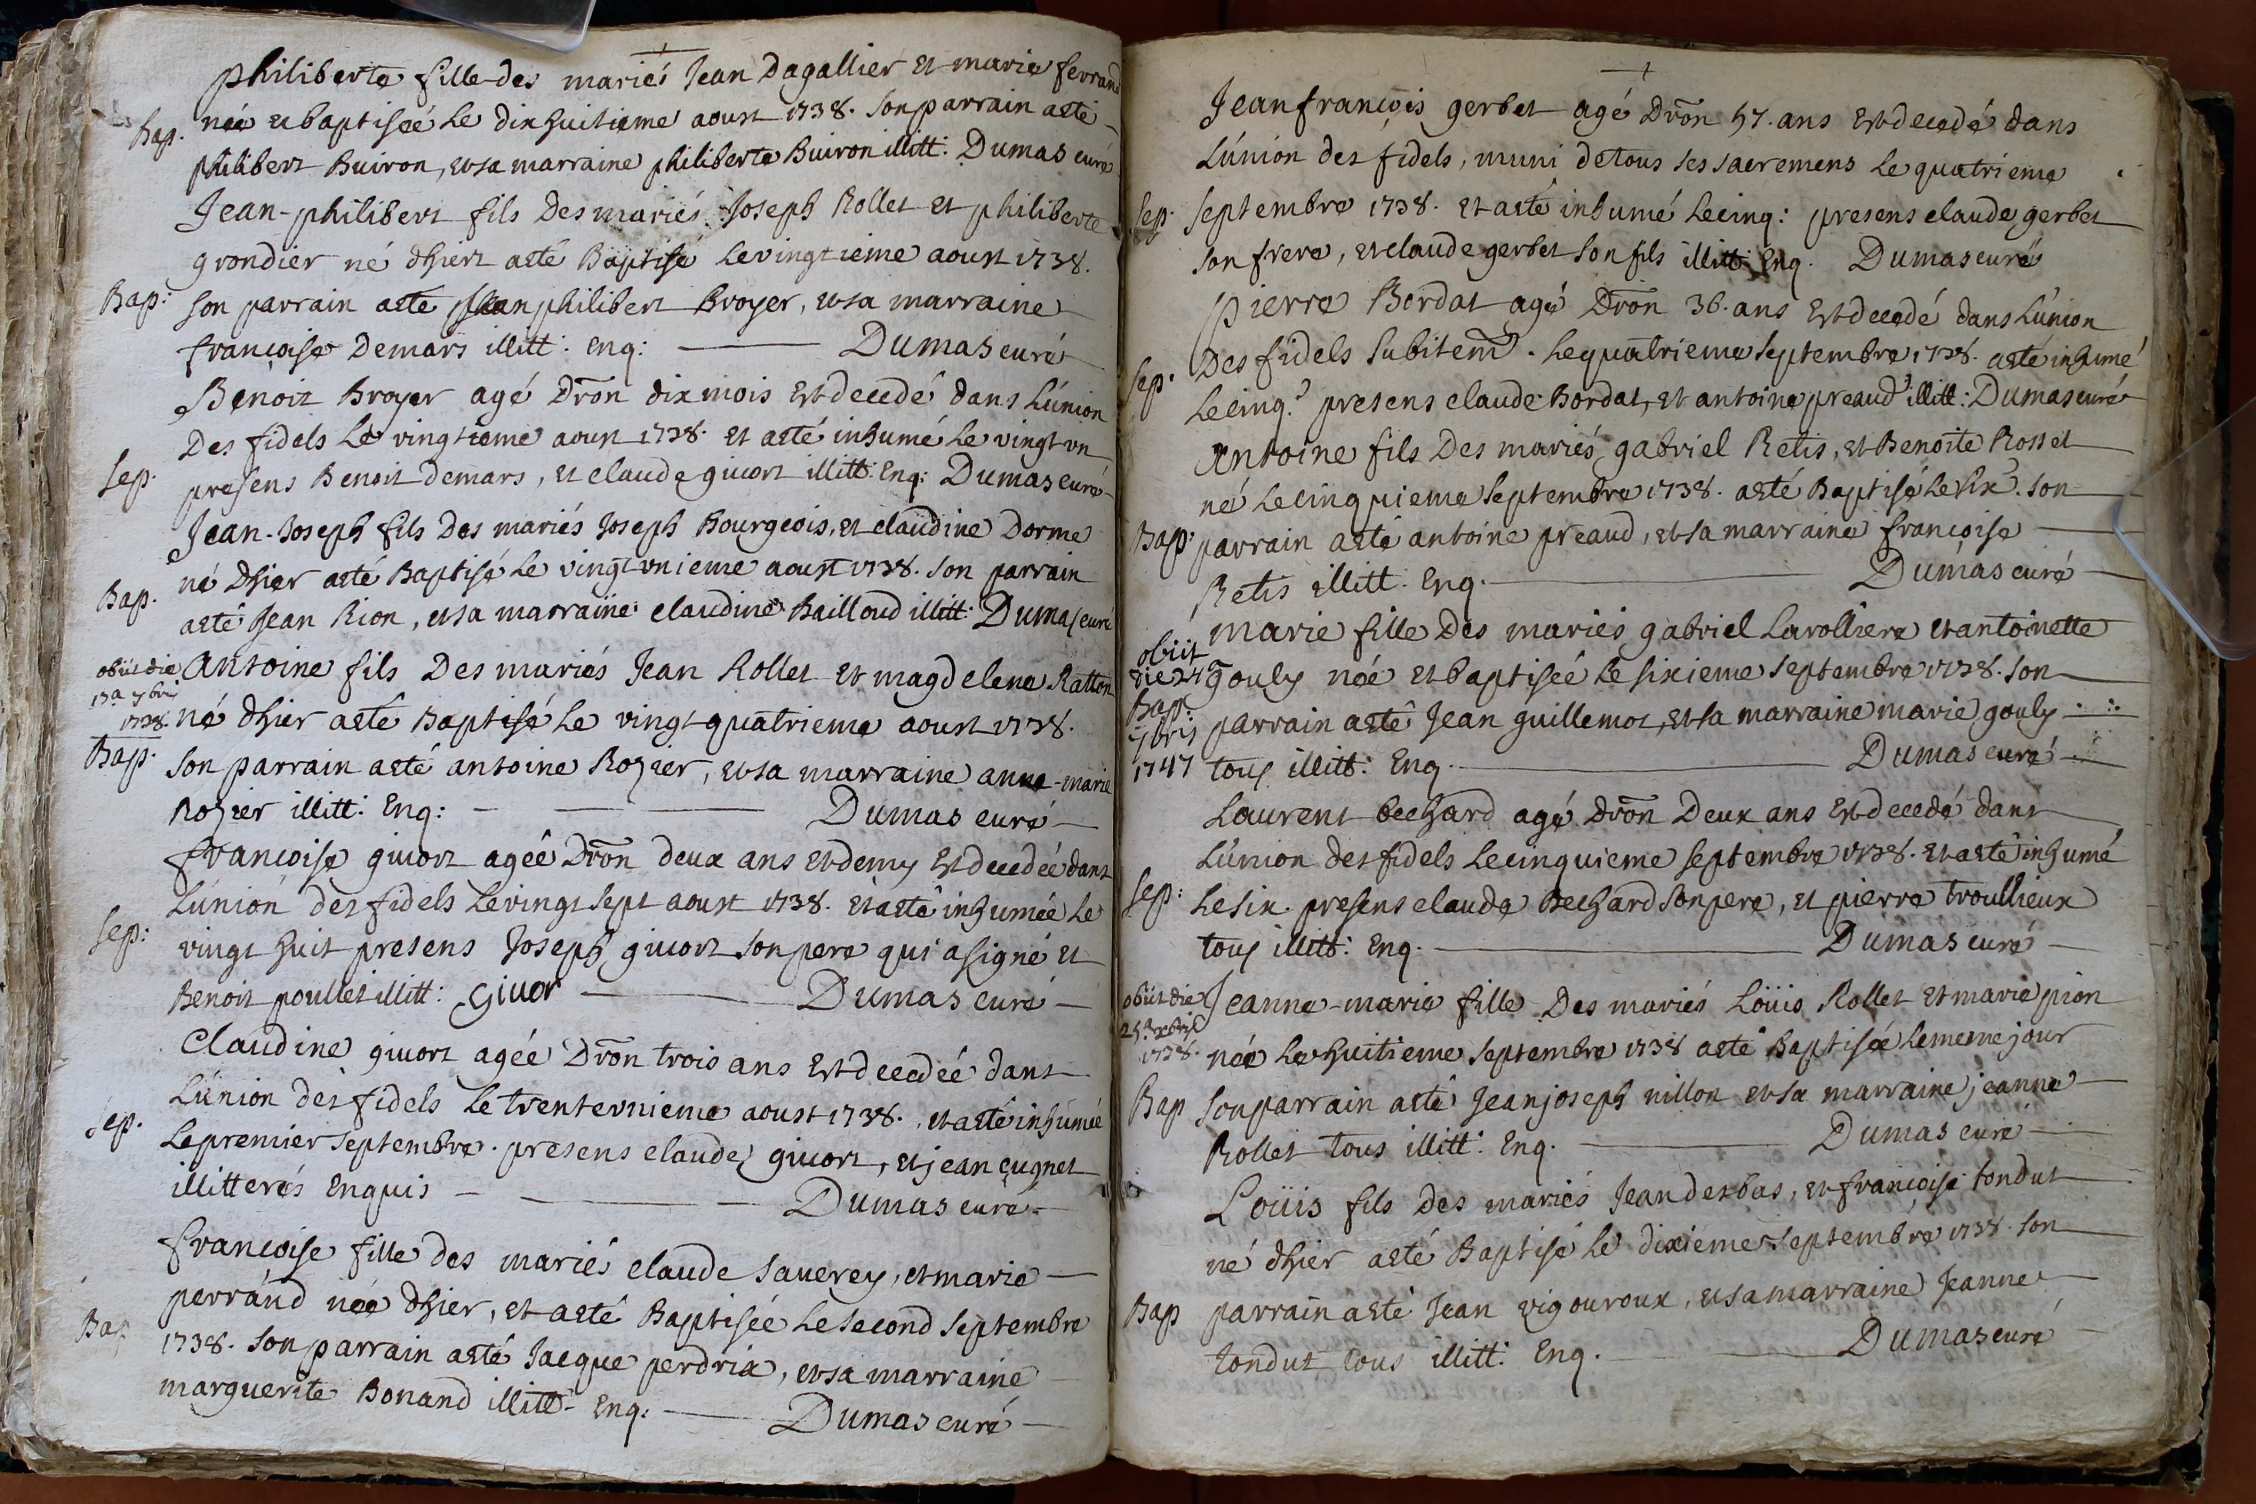 philiberte fille des mariés Jean Dagallier et marie ferrand
Bap. née et baptisée le dix huitieme aoust 1738. son parrain a esté
philibert Buiron, et sa marraine philiberte Buiron illitt: Dumas curé
Jean-philibert fils Des mariés Joseph Rollet et philiberte
grondier né dhiert a esté Baptisé le vingtieme aoust 1738.
Bap: son parrain a esté Jean philibert Broyer, et sa marraine
françoise Demars illitt: Enq: Dumas curé
Benoit Broyer agé Dron dix mois Est decedé dans L'union
Des fidels Le vingtieme aoust 1738. Et a esté inhumé Le vingt un
Sep. presens Benoit demars, et claude givort illitt: Enq: Dumas curé
Jean-Joseph fils Des mariés Joseph Bourgeois, et claudine Dorme
né Dhier a esté Baptisé Le vingt unieme aoust 1738. son parrain
Bap. a esté Jean Rion, et sa marraine claudine Bailloud illitt: Dumas curé
obiit die Antoine fils Des mariés Jean Rollet et magdelene Ratton
13a 7bris
1738. né dhier a esté Baptisé Le vingt quatrieme aoust 1738.
Bap. son parrain a esté antoine Rozier, et sa marraine anne-marie
Rozier illitt: Enq: Dumas curé
françoise givort agée Dron deux ans et demy Est decedée dans
L'union des fidels Le vingt sept aoust 1738. et a esté inhumée Le
Sep: vingt huit presens Joseph givort son pere qui a signé et
Benoit poullet illitt: givor Dumas curé
Claudine givort agée Dron trois ans Est decedée dans
L'union des fidels Le trente unieme aoust 1738. et a esté inhumée
Sep. Le premier septembre. presens claude givort, et jean cugnet
illitterés Enquis Dumas curé
françoise fille des mariés claude saverey, et marie
perraud née dhier, et a esté Baptisée Le second septembre
Bap 1738. son parrain a esté Jacque perdrix, et sa marraine
marguerite Bonand illitt- Enq: Dumas curé
Jean françois gerbet agé Dron 57. ans Est decedé dans
L'union des fidels, muni de tous ses sacremens Le quatrieme
Sep. septembre 1738. et a esté inhumé Le cinq: presens claude gerbet
son frere, et claude gerbet son fils illitt: Enq. Dumas curé
pierre Bordat agé Dron 36. ans Est decedé dans L'union
Sep. Des fidels subitem. Le quatrieme septembre 1738. a esté inhumé
Le cinq. presens claude Bordat, et antoine preaud illitt: Dumas curé
Antoine fils Des mariés gabriel Retis, et Benoite Rosset
né Le cinquieme septembre 1738. a esté Baptisé Le six. son
Bap: parrain a esté antoine preaud, et sa marraine françoise
Retis illitt. Enq. Dumas curé
marie fille Des mariés gabriel Lavolliere et antoinette
obiit
die 24 gouly née et baptisée Le sixieme septembre 1738. son
Bap:
7bris parrain a esté Jean guillemot, et sa marraine marie gouly
1747 tous illitt: Enq. Dumas curé
Laurent bechard agé Dron Deux ans Est decedé dans
L'union des fidels Le cinquieme septembre 1738. et a esté inhumé
Sep: Le six. presens claude Bechard son pere, et pierre troullieux
tous illitt: Enq. Dumas curé
obiit die Jeanne-marie fille Des mariés Loüis Rollet et marie pion
25a xbris
1738. née Le huitieme septembre 1738 a esté Baptisée Le meme jour
Bap son parrain a esté Jean joseph nillon et sa marraine jeanne
Rollet tous illitt: Enq. Dumas curé
Loüis fils des mariés Jean desbas, et françoise tondut
né dhier a esté Baptisé Le dixieme septembre 1738. son
Bap parrain a esté Jean vigouroux, et sa marraine Jeanne
tondut tous illitt: Enq. Dumas curé